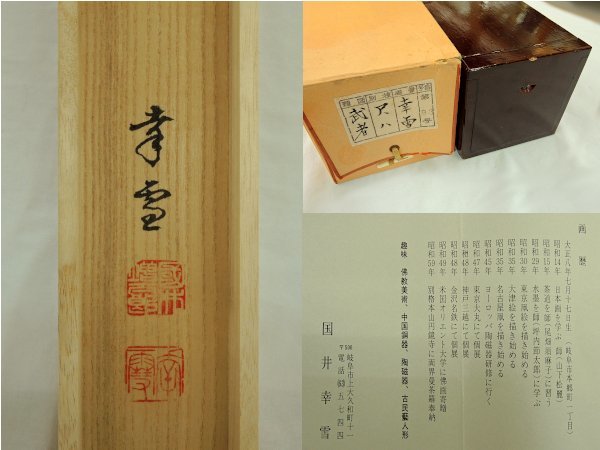 幸雪
幸雪
尺八
武者
画歴
大正八年七月十七日生 (岐阜市本郷町一丁目)
昭和14年 日本画を学ぶ 師(山下松麗)
昭和15年 茶道を師(尾畑瑞麻子)に習う
昭和29年 水墨を師(坪内節太郎)に学ぶ
昭和30年 東京風絵を描き始める
昭和35年 大津絵を描き始める
昭和35年 名古屋風を描き始める
昭和45年 ヨーロッパ陶磁器研修に行く
昭和47年 東京大丸にて個展
昭和48年 神戸三越にて個展
昭和48年 金沢名鉄にて個展
昭和49年 米国オリエント大学に佛画寄贈
昭和59年 別格本山円鏡寺に両界曼荼羅奉納
趣味 佛教美術、中国銅器 陶磁器、古民藝人形
国井幸雪
〒500
岐阜市上大久和町十一
電話(63)五七四四